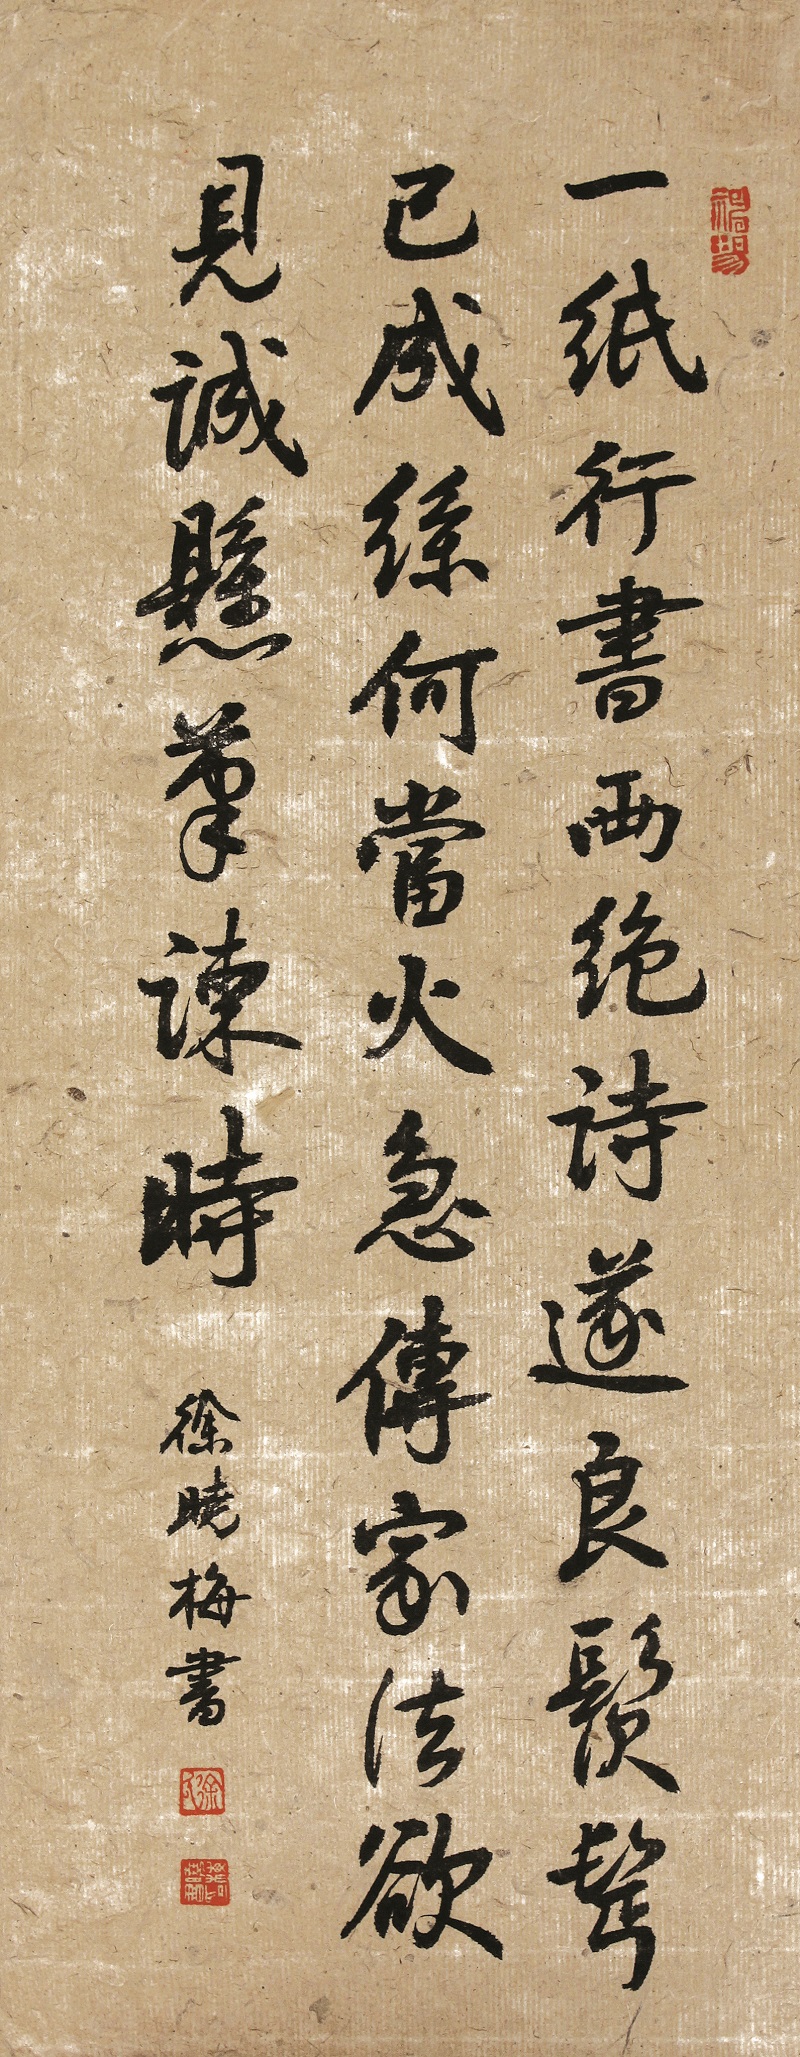 一紙行書兩絶詩遂良鬚鬢
已成絲何當火急傳家法欲
見誠懸筆諫時
徐曉梅書